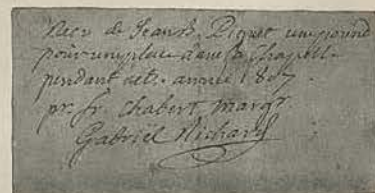 Recu de Frans. Piquet un pound
pour une place dans la Chapelle
pendant cette année 1807
pr. fr. Chabert margr
Gabriel Richard